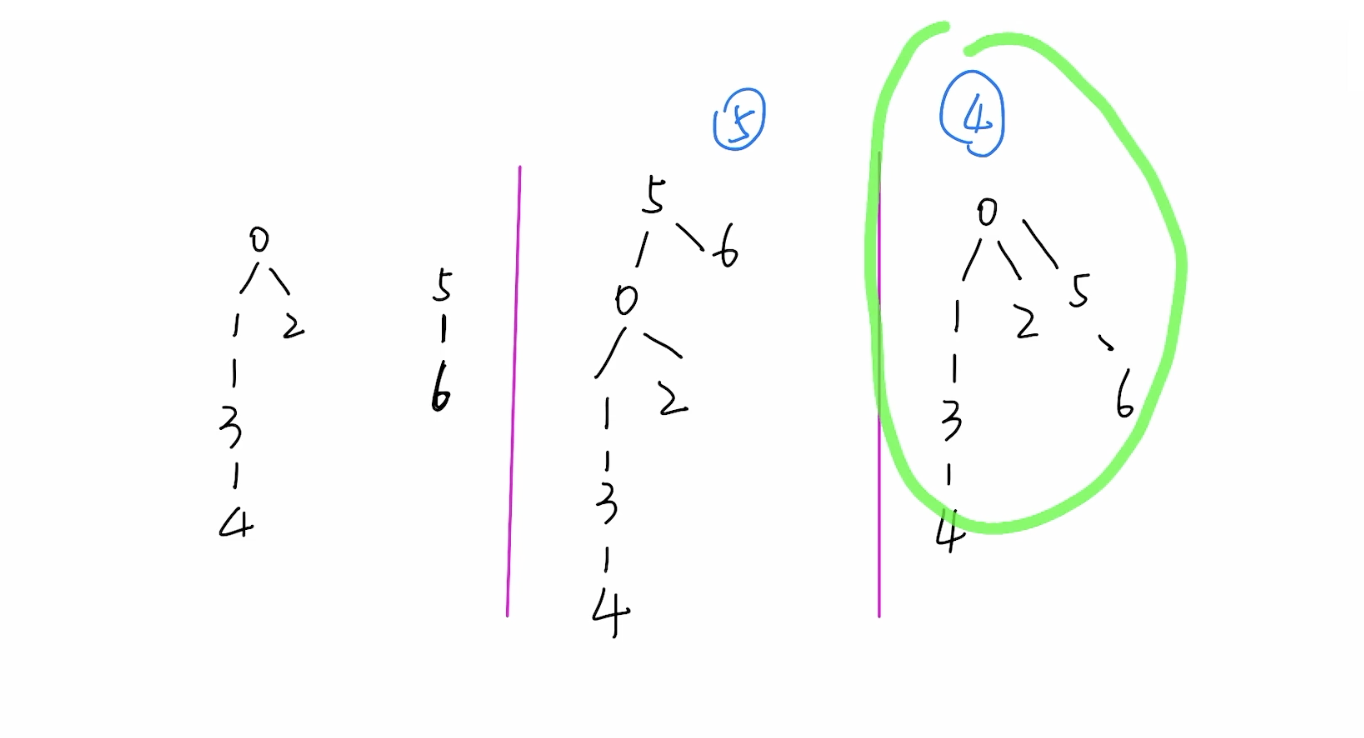 0
1 2
3
4
5
6
5
5
6
0
1 2
3
4
4
0
1 2 5
3 6
4